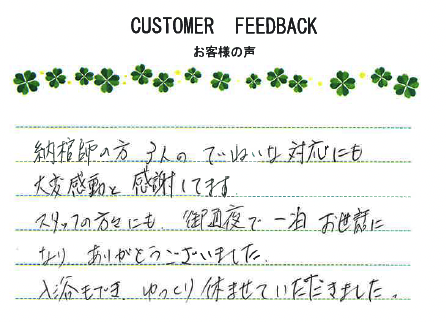 CUSTOMER FEEDBACK
お客様の声
納棺師の方 3人の ていねいな対応にも
大変感動と感謝してます
スタッフの方々にも、御通夜で一泊お世話に
なり ありがとうございました
入浴もでき、ゆっくり休ませていただきました。